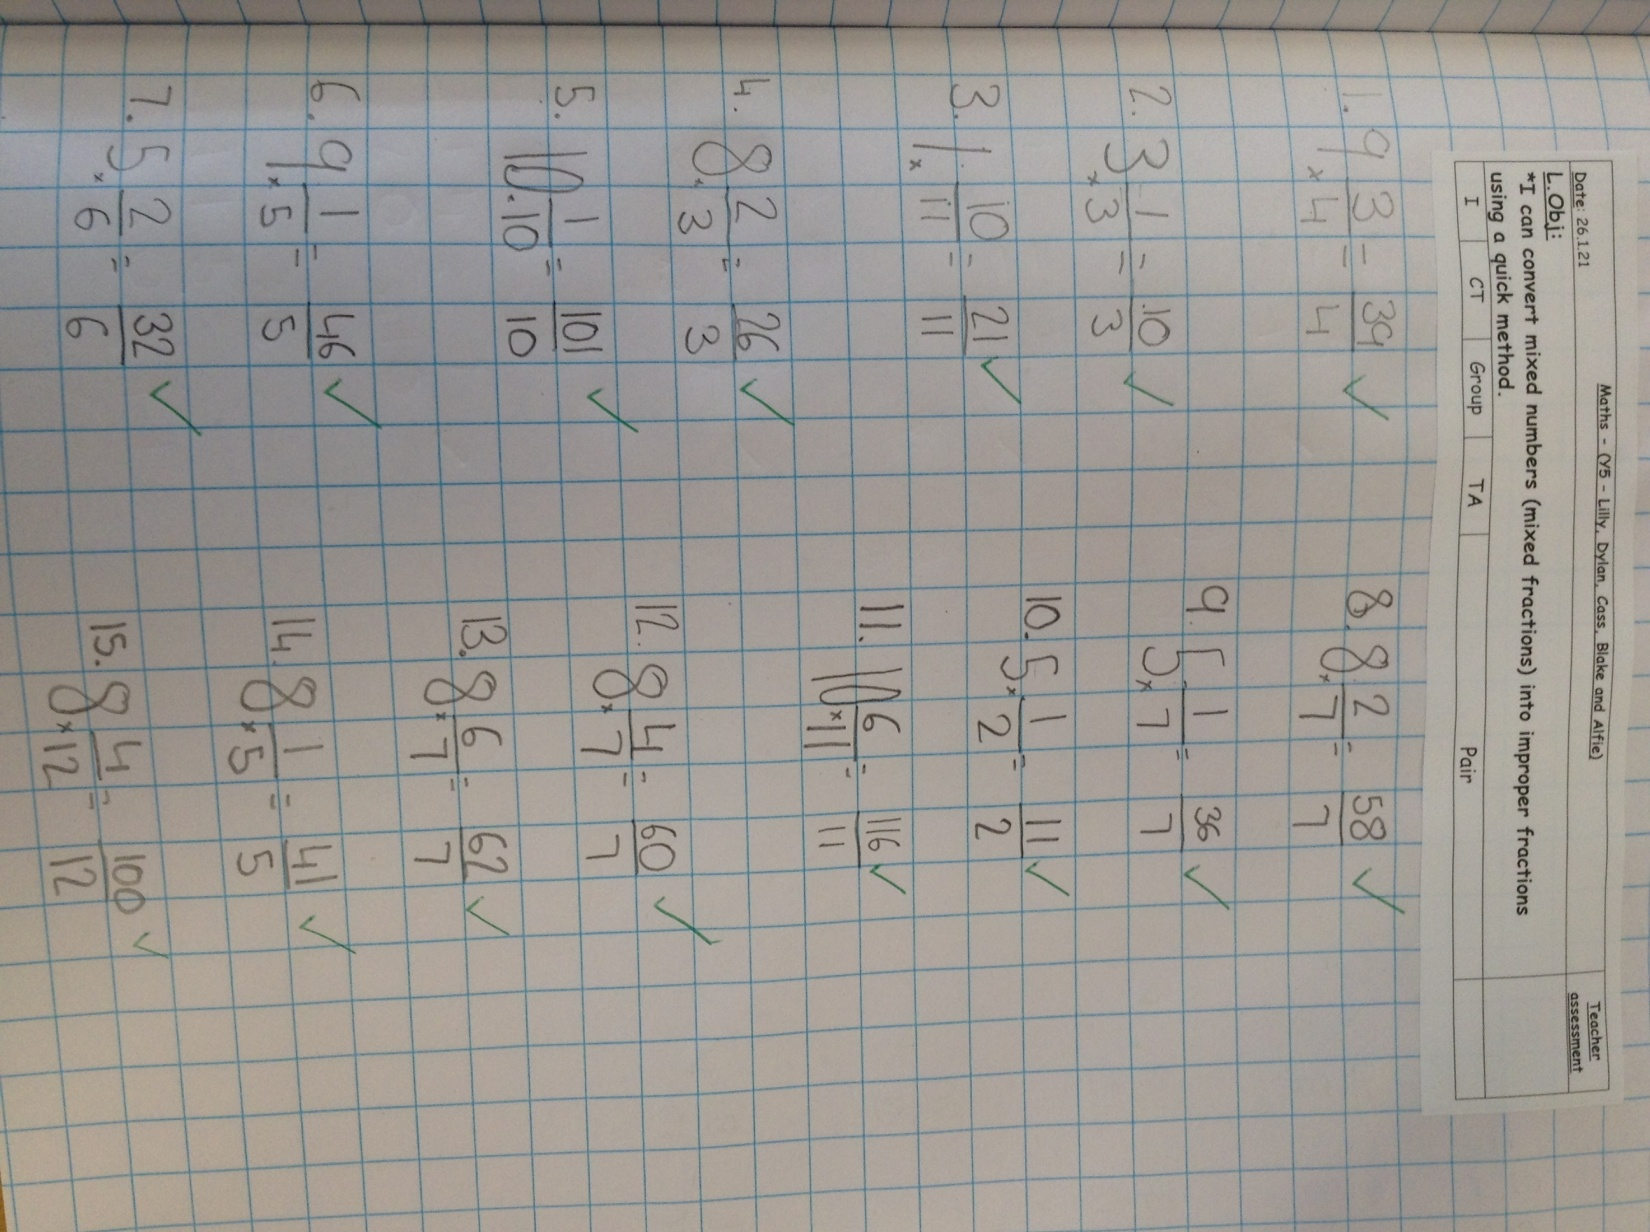 Maths - (Y5 - Lilly, Dylan, Cass, Blake and Alfie)
Date: 26.1.21
Teacher assessment
L.Obj:
*I can convert mixed numbers (mixed fractions) into improper fractions
using a quick method.
I CT Group TA Pair
1. 9 × 3/4 = 39/4 ✓
2. 3 × 1/3 = 10/3 ✓
3. 1 × 10/11 = 21/11 ✓
4. 8 × 2/3 = 26/3 ✓
5. 10 × 1/10 = 101/10 ✓
6. 9 × 1/5 = 46/5 ✓
7. 5 × 2/6 = 32/6 ✓
8. 8 × 2/7 = 58/7 ✓
9. 5 × 1/7 = 36/7 ✓
10. 5 × 1/2 = 11/2 ✓
11. 10 × 6/11 = 116/11 ✓
12. 8 × 4/7 = 60/7 ✓
13. 8 × 6/7 = 62/7 ✓
14. 8 × 1/5 = 41/5 ✓
15. 8 × 4/12 = 100/12 ✓